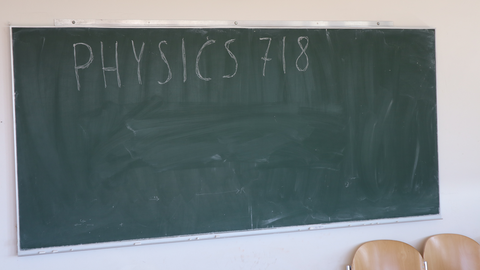 PHYSICS 718